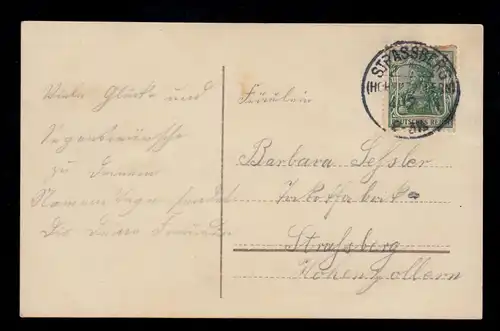 Viele Glück- und
Segenswünsche
zu Deinem
Namens Tage sendet
Dir Deine Freundin
Fräulein
Barbara Seßler
Strassberg
Hohenzollern
STRASSBERG
DEUTSCHES REICH